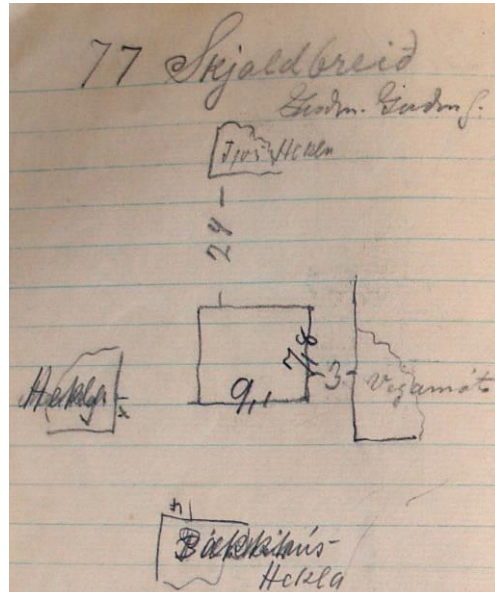 77 Skjaldbreið
Guðm. Guðm f.
Hekla
24
7,8
3
9,1
Vegamót
Hekla
4
Bakkahús-
Hekla